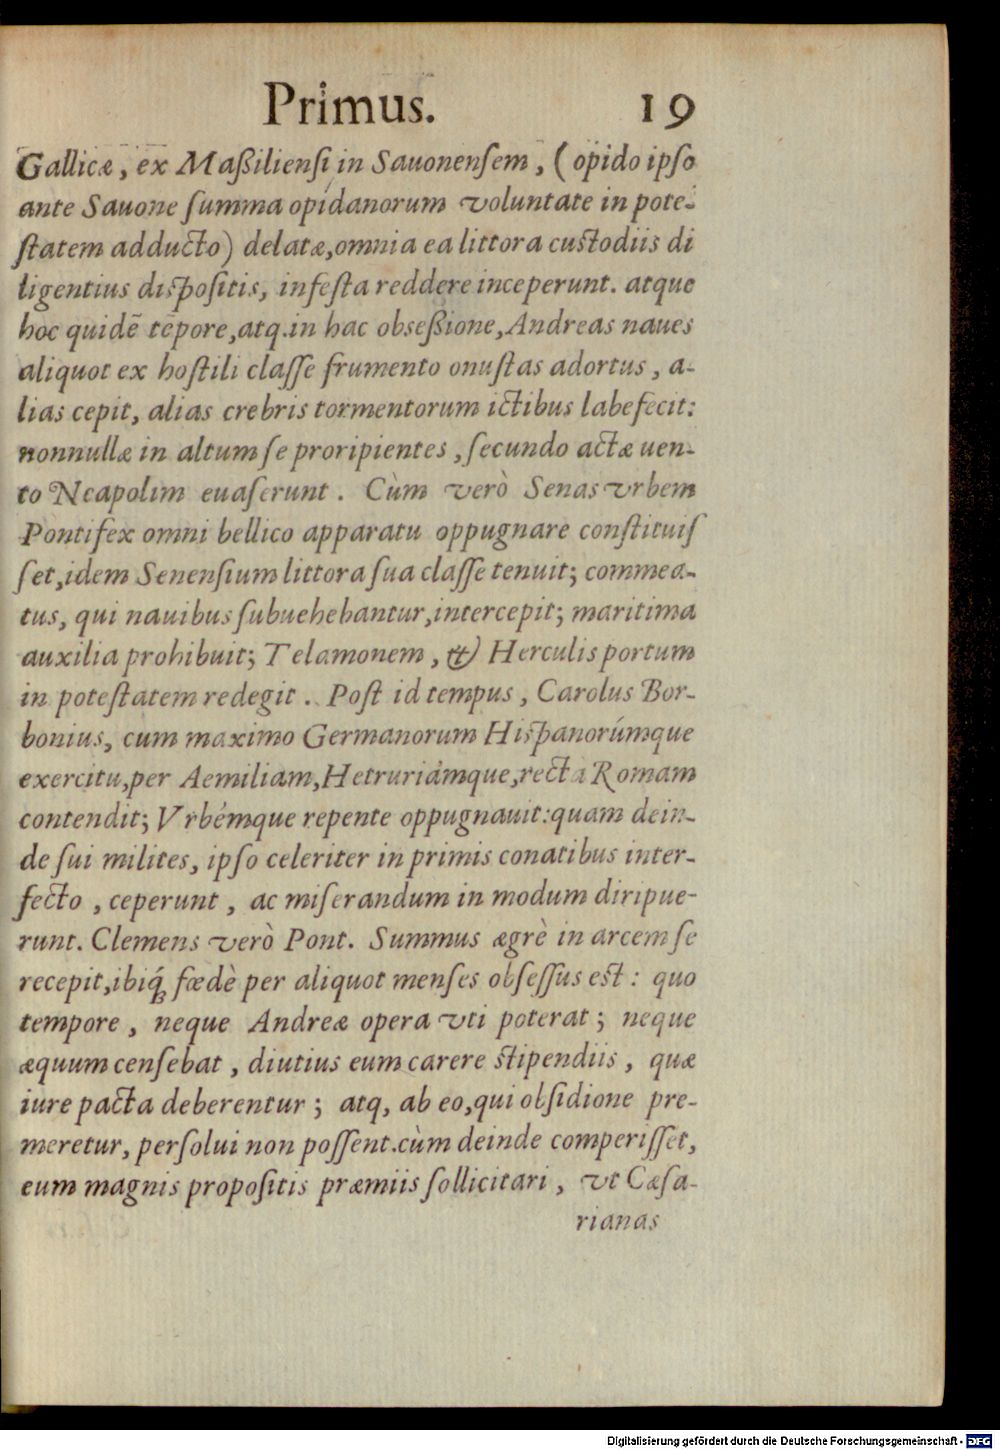 Primus. 19
Gallicæ, ex Maßiliensi in Sauonensem, (opido ipso
ante Sauone summa opidanorum voluntate in pote-
statem adducto) delatæ, omnia ea littora custodiis di
ligentius dispositis, infesta reddere inceperunt. atque
hoc quidē tēpore, atq. in hac obseßione, Andreas naues
aliquot ex hostili classe frumento onustas adortus, a-
lias cepit, alias crebris tormentorum ictibus labefecit:
nonnullæ in altum se proripientes, secundo actæ uen-
to Neapolim euaserunt. Cùm verò Senas vrbem
Pontifex omni bellico apparatu oppugnare constituis
set, idem Senensium littora sua classe tenuit; commea-
tus, qui nauibus subuehebantur, intercepit; maritima
auxilia prohibuit; Telamonem, & Herculis portum
in potestatem redegit. Post id tempus, Carolus Bor-
bonius, cum maximo Germanorum Hispanorúmque
exercitu, per Aemiliam, Hetruriámque, recta Romam
contendit; Vrbémque repente oppugnauit: quam dein-
de sui milites, ipso celeriter in primis conatibus inter-
fecto, ceperunt, ac miserandum in modum diripue-
runt. Clemens verò Pont. Summus ægrè in arcem se
recepit, ibiq́; fœdè per aliquot menses obsessus est: quo
tempore, neque Andreæ opera vti poterat; neque
æquum censebat, diutius eum carere stipendiis, quæ
iure pacta deberentur; atq, ab eo, qui obsidione pre-
meretur, persolui non possent. cùm deinde comperisset,
eum magnis propositis præmiis sollicitari, vt Cæsa-
rianas
Digitalisierung gefördert durch die Deutsche Forschungsgemeinschaft - DFG